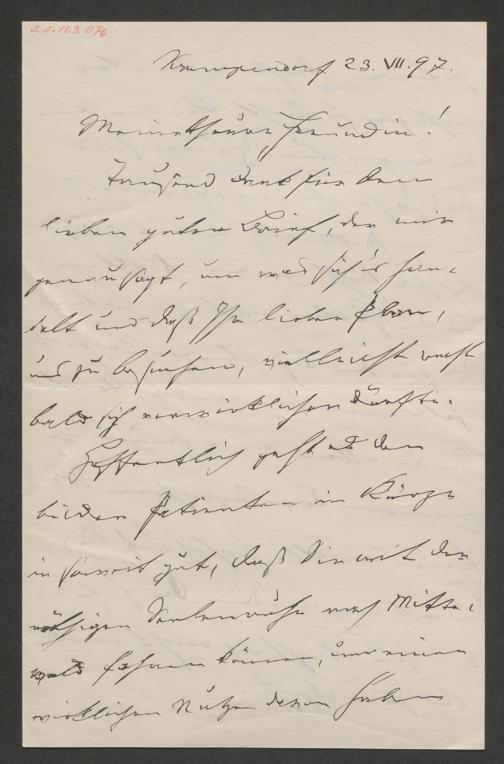 J.N. 123.076
Krumpendorf 23. VII. 97.
Meine theure Freundin!
Tausend Dank für den
lieben guten Brief, der mir
genau sagt, um was sich's han-
delt und daß Ihr lieber Plan,
uns zu besuchen, vielleicht recht
bald sich verwirklichen dürfte.
Hoffentlich geht es den
beiden Patienten in Kürze
in soweit gut, daß Sie mit der
nöthigen Seelenruhe nach Mitter-
wald fahren können, um einen
wirklichen Nutzen davon haben